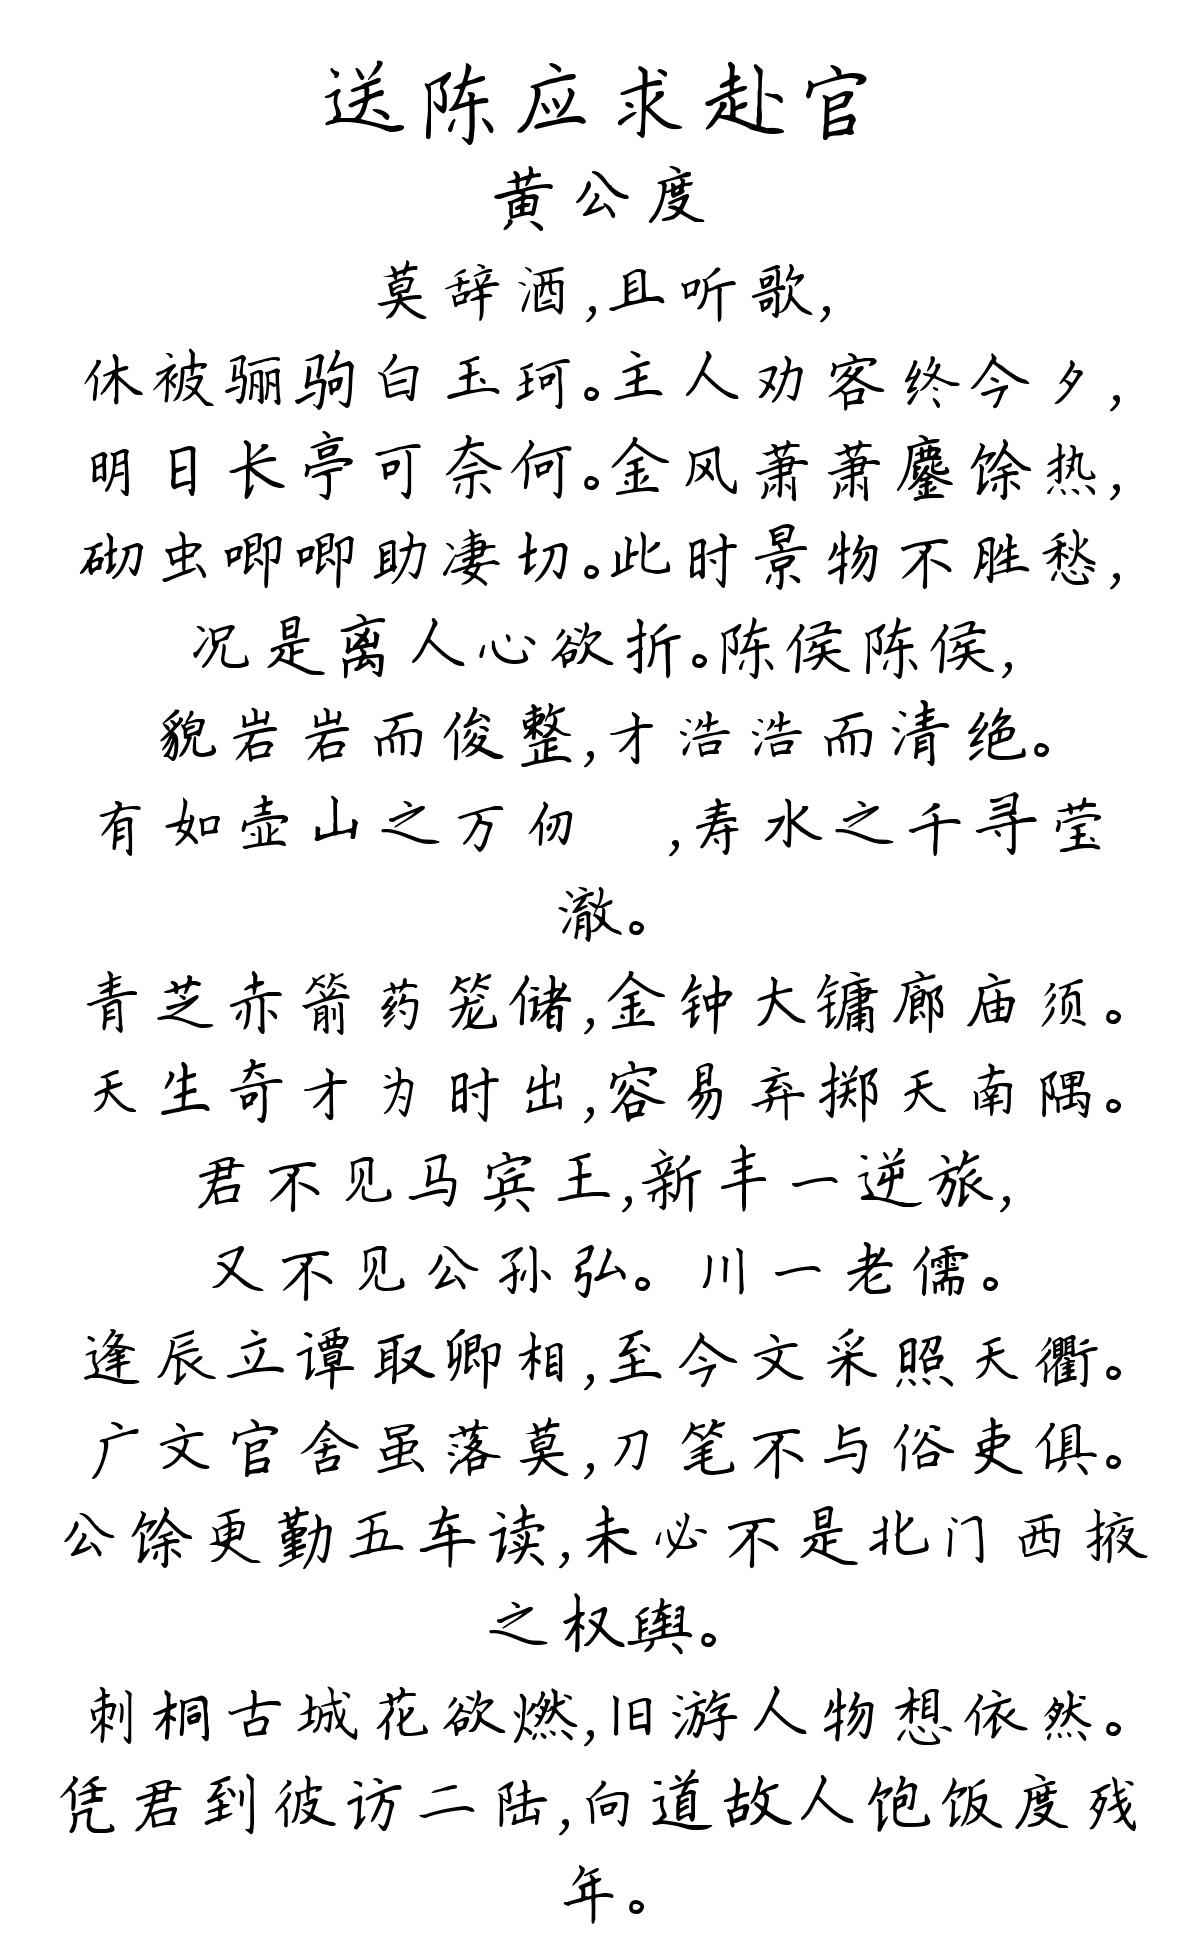 送陈应求赴官
黄公度
莫辞酒,且听歌,
休被骊驹白玉珂。主人劝客终今夕,
明日长亭可奈何。金风萧萧鏖馀热,
砌虫唧唧助凄切。此时景物不胜愁,
况是离人心欲折。陈侯陈侯,
貌岩岩而俊整,才浩浩而清绝。
有如壶山之万仞 ,寿水之千寻莹
澈。
青芝赤箭药笼储,金钟大镛廊庙须。
天生奇才为时出,容易弃掷天南隅。
君不见马宾王,新丰一逆旅,
又不见公孙弘。川一老儒。
逢辰立谭取卿相,至今文采照天衢。
广文官舍虽落莫,刀笔不与俗吏俱。
公馀更勤五车读,未必不是北门西掖
之权舆。
刺桐古城花欲燃,旧游人物想依然。
凭君到彼访二陆,向道故人饱饭度残
年。